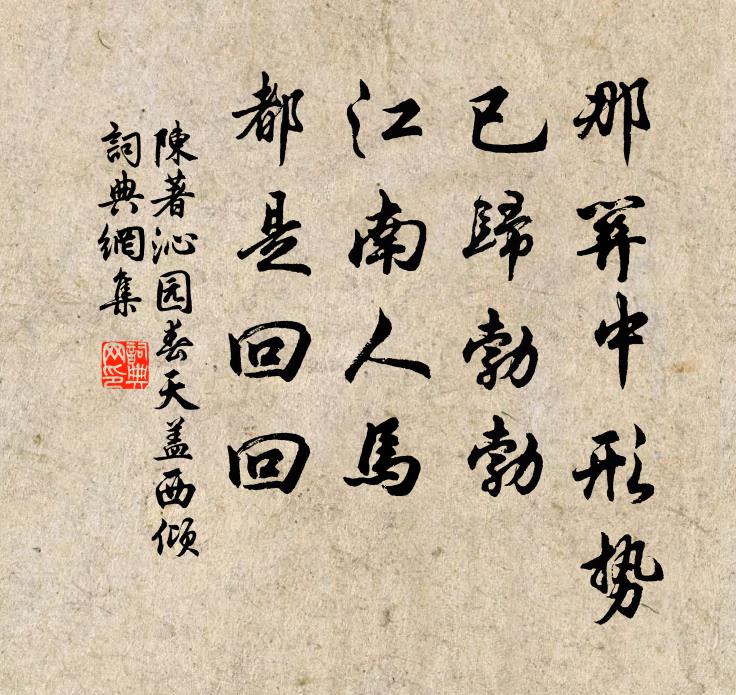 那羿中形势
已歸勃勃
江南人馬
都是回回
陳著沁园春天盖西倾
詞典網集
詞典网印